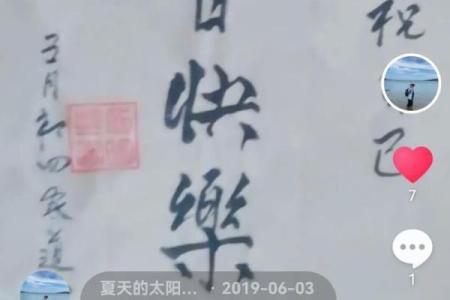 祝
己
日快樂
五月初四農道
7
1
夏天的太阳... · 2019-06-03